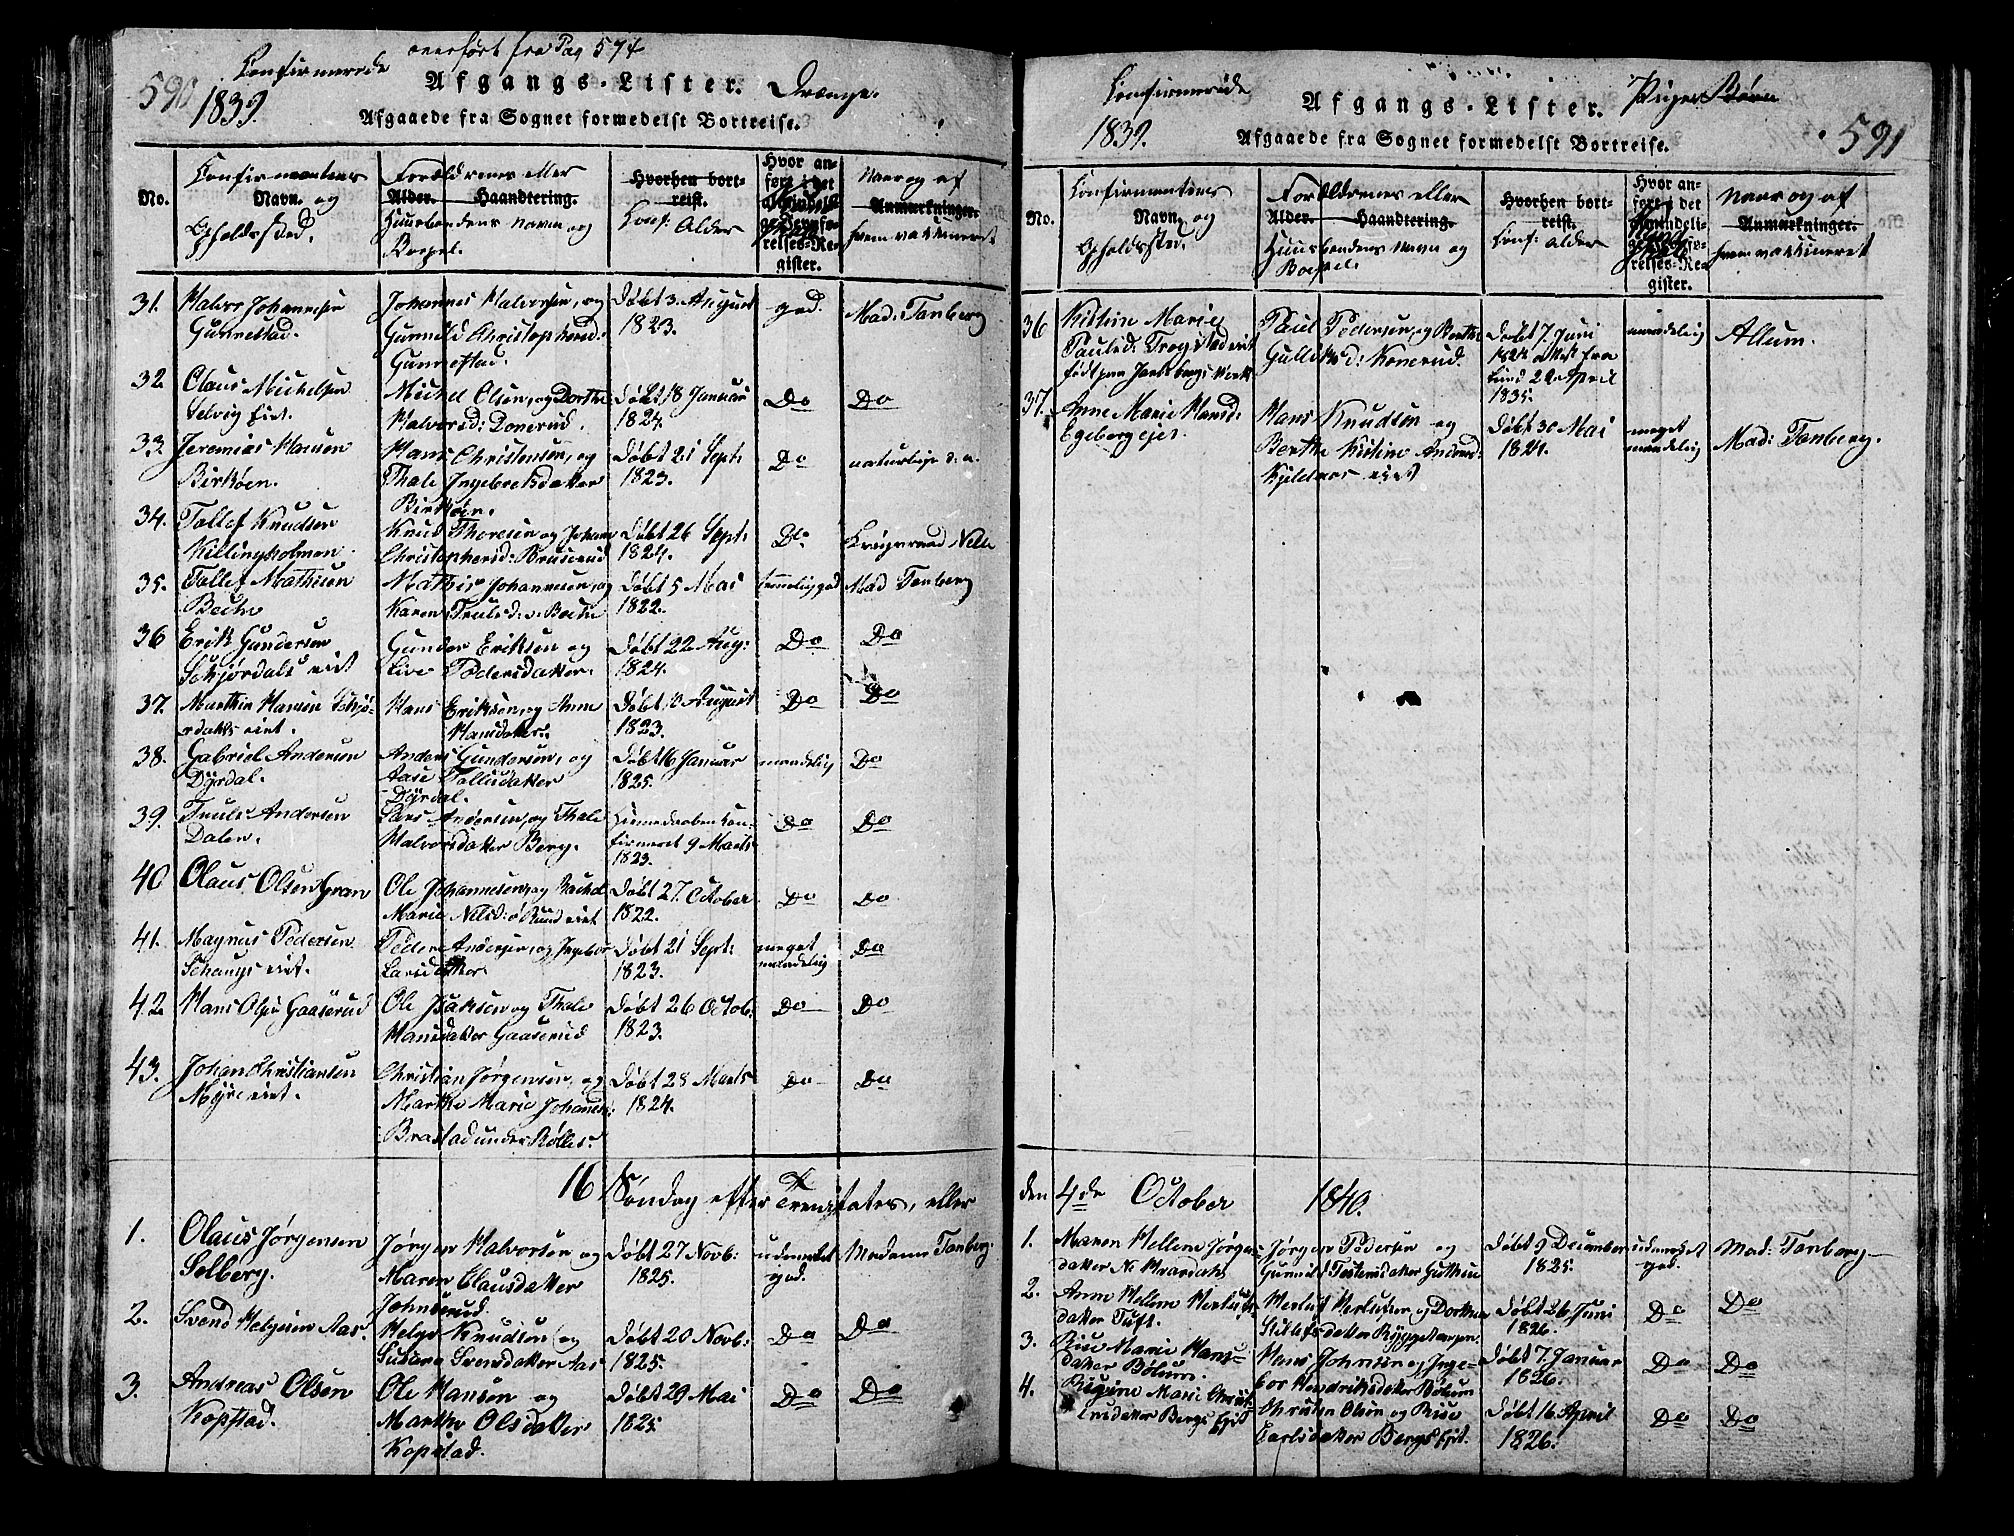 590
Confirmerede
overført fra Pag 574
1839.
Afgangs-Lister.
Drenge.
Afgaaede fra Sognet formedelst Bortreise.
No.
Confirmantens
Navn og
Opholdssted.
Forældrenes eller
Alder. Haandtering.
Huusbondens Navn og
Bopæl.
Hvorhen bort-
reist.
Conf: Alder
Hvor an-
ført i det
relses-Re-
gister.
Naar og af
Anmærkninger.
hvem vaccineret
31. Halvor Johannesen
Gunnestad.
Johannes Halvorsen, og
Gunnild Christophersd:
Gunnestad.
Døbt 3 August
1823.
god.
Mad: Tanberg
32. Claus Michelsen
Selvig eiet.
Michel Olsen, og Dorthe
Halvorsd: Donerud.
Døbt 18 Januar
1824.
Do
Do
33. Jeremias Hansen
Birkøen.
Hans Christensen, og
Thale Ingebretsdatter
Birkøen.
Døbt 21 Sept:
1823.
Do
naturlige d. a.
34. Tollef Knudsen
Killingholmen.
Knud Thoresen og Johanne
Christophersd: Bruserud
Døbt 26 Sept:
1824.
Do
Krigsraad Nelle
35. Tollef Mathisen
Beche
Mathis Johannesen, og
Karen Trulsd: v. Beche
Døbt 5 Mai
1822.
temmelig god
Mad Tanberg
36 Erik Gundersen
Schjørdals eiet
Gunder Eriksen og
Live Pedersdatter.
Døbt 22 Aug:
1824.
Do
Do
37. Marthin Hansen Schjø-
rdals eiet.
Hans Eriksen, og Anne
Hansdatter.
Døbt 10 August
1823.
Do
Do
38. Gabriel Andersen
Dyrdal.
Anders Gundersen, og
Aase Tollesdatter
Dyrdal.
Døbt 16 Januar
1825.
maadelig
Do
39. Truls Andersen
Dalen.
Lars Andersen, og Thale
Halvorsdatter Berg.
Hjemmedøben con-
firmeret 9 Marts
1823.
Do
Do
40 Olaus Olsen Gran
Ole Johannesen, og Rachel
Marie Nilsd: ø Ruud eiet
Døbt 27 October
1822.
Do
Do
41. Magnus Pedersen
Schaugs eiet.
Peder Andersen, og Ingebor
Larsdatter
Døbt 21 Sept:
1823.
meget
maadelig
Do
42. Hans Olsen Gaaserud
Ole Isaksen og Thale
Hansdatter Gaaserud
Døbt 26 Octob:
1823.
Do
Do
43. Johan Christiansen
Myre eiet.
Christian Jørgensen, og
Marthe Marie Johannesd:
Brastad under Rølles:
Døbt 28 Marts
1824.
Do
Do
16 Søndag efter Trenitates, eller
1. Olaus Jørgensen
Solberg.
Jørgen Halvorsen og
Maren Clausdatter
Johnsrud.
Døbt 27 Novb:
1825.
udmerket
god.
Madame Tanberg.
2. Svend Helgesen Aas.
Helge Knudsen og
Susana Svensdatter Aas
Døbt 20 Novb:
1825.
Do
Do
3. Andreas Olsen
Kopstad.
Ole Hansen og
Marthe Olsdatter
Kopstad.
Døbt 29 Mai
1825
Do
Do
Confirmerede
1839.
Afgangs-Lister.
Piger Børn
591
Afgaaede fra Sognet formedelst Bortreise.
No.
Confirmantens
Navn og
Opholdssted.
Forældrenes eller
Alder. Haandtering.
Huusbondens Navn og
Bopæl.
Hvorhen bort-
reist.
Conf: Alder
Hvor an-
ført i det
relses-Re-
gister.
Naar og af
Anmærkninger.
hvem vaccineret
36 Kistine Marie
Paulsd: Trogstad eiet
født paa Jarlsbergs Værk
Paul Pedersen, og Berthe
Gulliksd: Konerud.
Døbt 7 Juni
1824 attest fra
Lund 29 April
1835.
maadelig
Allum.
37. Anne Marie Hansd:
Egeberg ejer.
Hans Knudsen og
Berthe Kistine Andersd:
Kjeldaas eiet
Døbt 30 Mai
1824.
meget
maadelig
Mad: Tanberg.
den 4de October 1840.
1. Maren Hellene Jørgens-
datter N: Hvardahl
Jørgen Pedersen og
Gunnild Torstensdatter
Døbt 9 December
1825.
udmerket
god.
Mad: Tanberg
2. Anne Hellene Herlufs-
datter Tuft.
Herluf Herlufsen, og Dorthea
Døbt 26 Juni
1826.
Do
Do
3. Rise Marie Hans-
datter Bølum.
Hans Johnsen og Inge-
bor Hendriksdatter Bølum
Døbt 7 Januar
1826.
Do
Do
4. Regine Marie Christ-
ensdatter Bergs Ejet
Christen Olsen og Rise
Carlsdatter Bergs Ejet.
Døbt 16 April
1826.
Do
Do